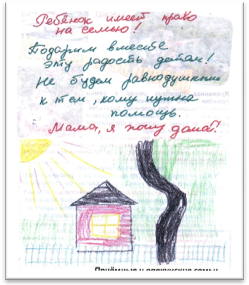 Ребёнок имеет право
на семью!
Подарим вместе
эту радость детям!
Не будем равнодушными
к тем, кому нужна
помощь.
Мама, я хочу домой!